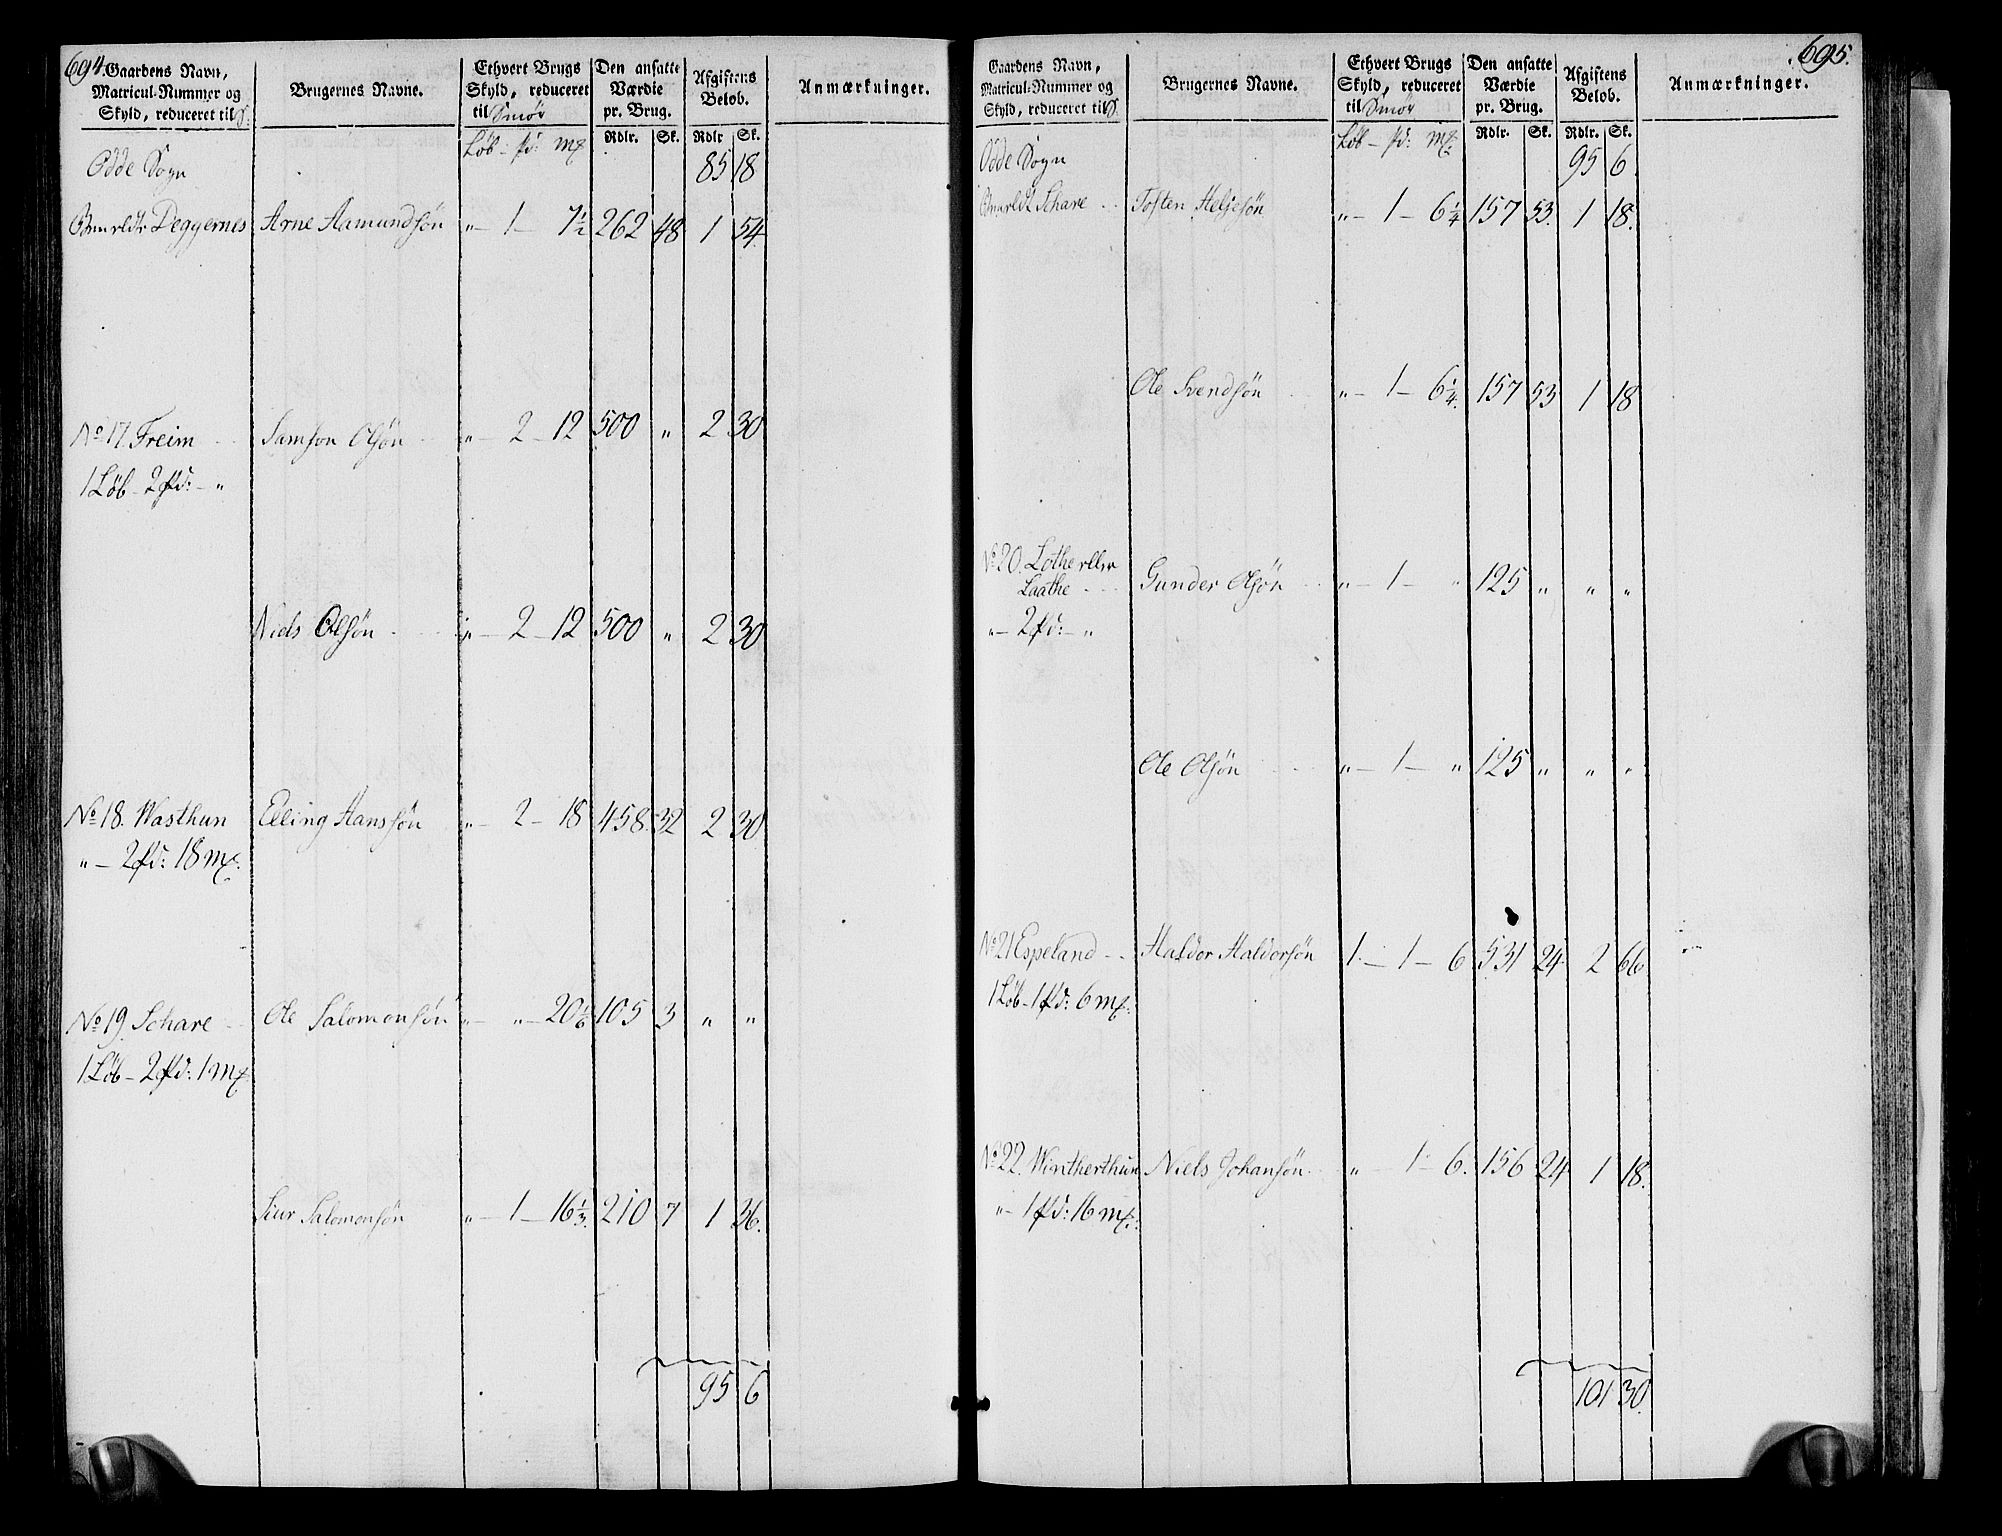 694.
Gaardens Navn, Matricul-Nummer og Skyld, reduceret til S. | Brugernes Navne. | Ethvert Brugs Skyld, reduceret til Smør | Den ansatte Værdie pr. Brug. | Afgiftens Belob. | Anmærkninger.
Løb - pd: mk | Rdlr. | Sk. | Rdlr | Sk.
Odde Sogn 85 18
Anmeldte Deggernes Arne Aamundsøn „ - 1 - 7½ 262 48 1 54
No 17. Freim Samson Olsøn „ - 2 - 12 500 „ 2 30
1 Løb - 2 pd: - „
Niels Olsøn „ - 2 - 12 500 „ 2 30
No 18. Wasthun Elling Hanssøn „ - 2 - 18 458. 32 2 30
„ - 2 pd: 18 mk.
No 19. Schare Ole Salomonsøn „ - „ - 20⅙ 105 3 „ „
1 Løb - 2 pd: 1 mk
Siur Salomonsøn „ - 1 - 16⅓. 210 7 1 36.
95 6
695.
Gaardens Navn, Matricul-Nummer og Skyld, reduceret til S. | Brugernes Navne. | Ethvert Brugs Skyld, reduceret til Smør | Den ansatte Værdie pr. Brug. | Afgiftens Belob. | Anmærkninger.
Løb - pd: mk: | Rdlr. | Sk. | Rdlr. | Sk.
Odde Sogn 95 6.
Schare Tosten Heljesøn „ - 1 - 6¼ 157 53. 1 18.
Ole Svendsøn „ - 1 - 6¼. 157 53 1 18
No 20. Lothe eller
Laathe Gunder Olsøn „ - 1 - „ 125 „ „ „
„ - 2 pd: - „
Ole Olsøn „ - 1 - „ 125 „ „ „
No 21 Espeland Haldor Haldorsøn 1. - 1 - 6. 531 24. 2 66
1 Løb - 1 pd: 6 mk.
No 22. Wintherthun Niels Johansøn „ - 1 - 6. 156 24 1 18.
„ - 1 pd: 16 mk.
101 30.